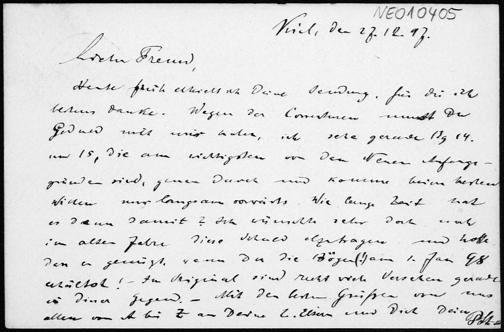 NEO10405
Kiel, den 27.12.97.
Lieber Freund,
Heute früh erhielt ich Deine Sendung, für die ich
bestens danke. Wegen der Correcturen musst Du
Geduld mit mir haben, ich sehe gerade Bg 14.
und 15, die am wichtigsten von den Neuen Anfangs-
gründen sind, genau durch und komme beim besten
Willen nur langsam vorwärts. Wie lange Zeit hat
es denn damit? Ich wünschte sehr doch noch
im alten Jahre diese Schuld abzutragen und hoffe
dass es genügt wenn Du die Bögen(!) am 1. Jan 98
erhältst! - Im Original sind recht viele Versehen gerade
in dieser Gegend. - Mit den besten Grüßen von uns
allen von A bis Z an Deine l. Eltern und Dich Dein